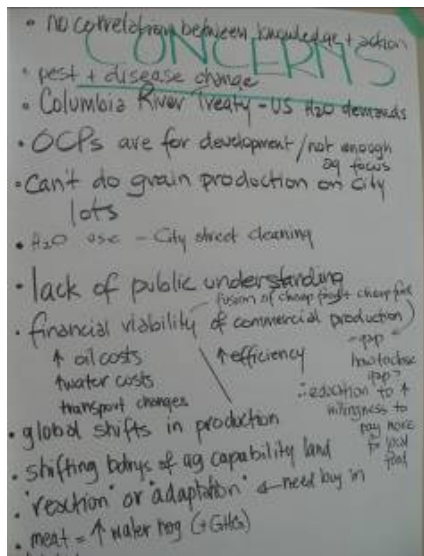 • no correlation between knowledge + action
CONCERNS
• pest + disease change
• Columbia River Treaty - US H2O demands
• OCPs are for development / not enough
ag focus
• Can't do grain production on City
lots
• H2O use - City street cleaning
• lack of public understanding
fusion of cheap food + cheap fuel
• financial viability of commercial production)
↑ oil costs
↑ water costs
transport changes
↑ efficiency
gap
how to close
gap?
∴ education to ↑
willingness to
pay more
for local
food
• global shifts in production
• shifting bdrys of ag capability land
• "reaction" or "adaptation" ← need buy in
• meat = ↑ water req (+GHGs)